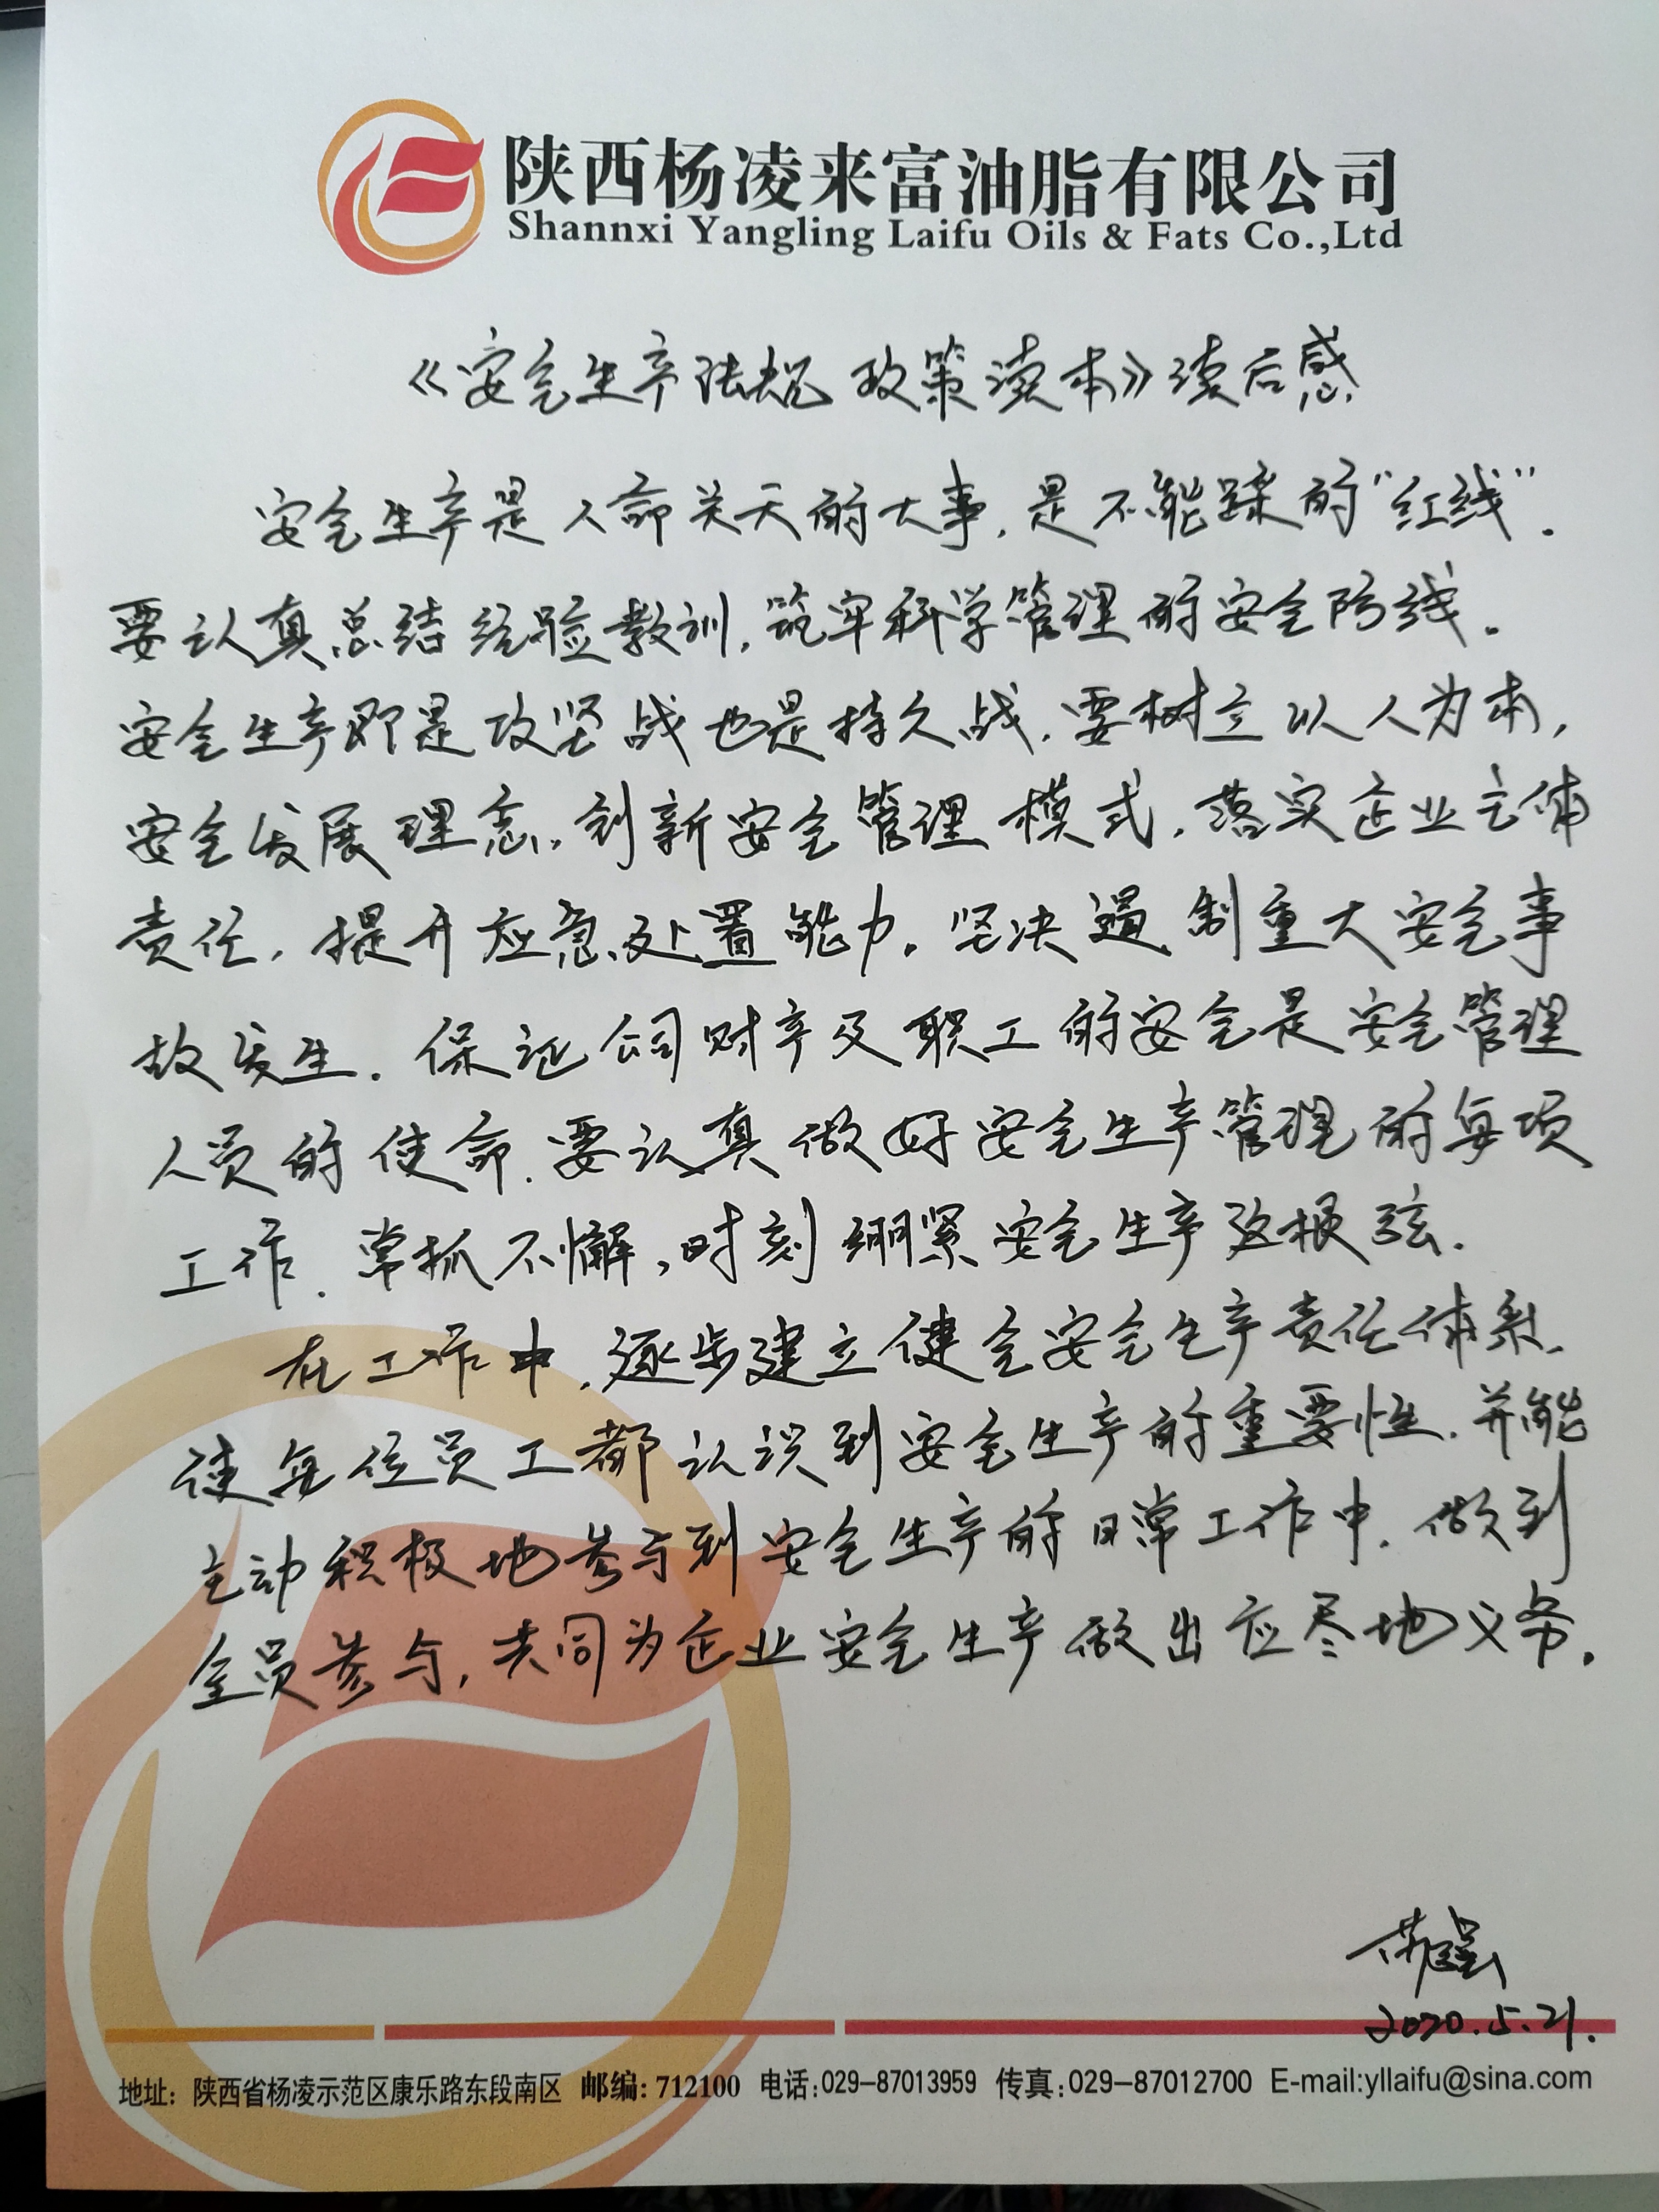 陕西杨凌来富油脂有限公司
Shannxi Yangling Laifu Oils & Fats Co.,Ltd
《安全生产法规政策读本》读后感
安全生产是人命关天的大事，是不能踩的“红线”。
要认真总结经验教训，筑牢科学管理的安全防线。
安全生产即是攻坚战也是持久战，要树立以人为本，
安全发展理念，创新安全管理模式，落实企业主体
责任，提升应急处置能力。坚决遏制重大安全事
故发生。保证公司财产及职工的安全是安全管理
人员的使命。要认真做好安全生产管理的每项
工作。常抓不懈，时刻绷紧安全生产这根弦。
在工作中，逐步建立健全安全生产责任体系。
使每位员工都认识到安全生产的重要性，并能
主动积极地参与到安全生产的日常工作中。做到
全员参与，共同为企业安全生产做出应尽地义务。
2020.5.21.
地址：陕西省杨凌示范区康乐路东段南区 邮编：712100 电话：029-87013959 传真：029-87012700 E-mail:yllaifu@sina.com